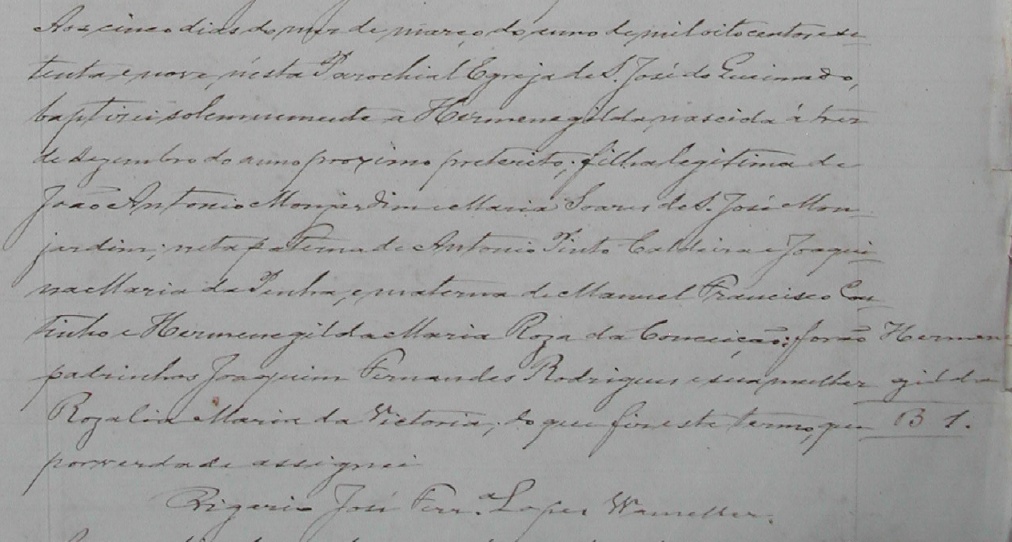 Aos cinco dias do mes de março do anno de mil oito centos e se-
tenta e nove, nesta Parochial Egreja de S. José do Queimado,
baptizei solemnemente a Hermenegilda, nascida á trez
de dezembro do anno proximo preterito; filha legitima de
João Antonio Monjardim e Maria Soares de S. José Mon-
jardim; neta paterna de Antonio Pinto Caldeira e Joaqui-
na Maria da Penha, e materna de Manuel Francisco Cou-
tinho e Hermenegilda Maria Roza da Conceição; forão
padrinhos Joaquim Fernandes Rodrigues e sua mulher
Rozalia Maria da Victoria; do que fiz este termo, que
por verdade assignei
José Ferr.ª Lopes
Hermene
gilda
B 1.